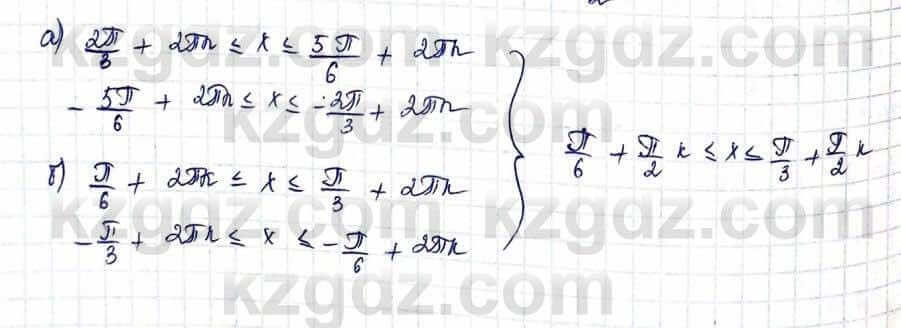 а) 2π/3 + 2πn ≤ x ≤ 5π/6 + 2πn
- 5π/6 + 2πn ≤ x ≤ - 2π/3 + 2πn
б) π/6 + 2πk ≤ x ≤ π/3 + 2πn
- π/3 + 2πn ≤ x ≤ - π/6 + 2πk
} π/6 + π/2 k ≤ x ≤ π/3 + π/2 k
kzgdz.com
kzgdz.com
kzgdz.com
kzgdz.com
kzgdz.com
kzgdz.com